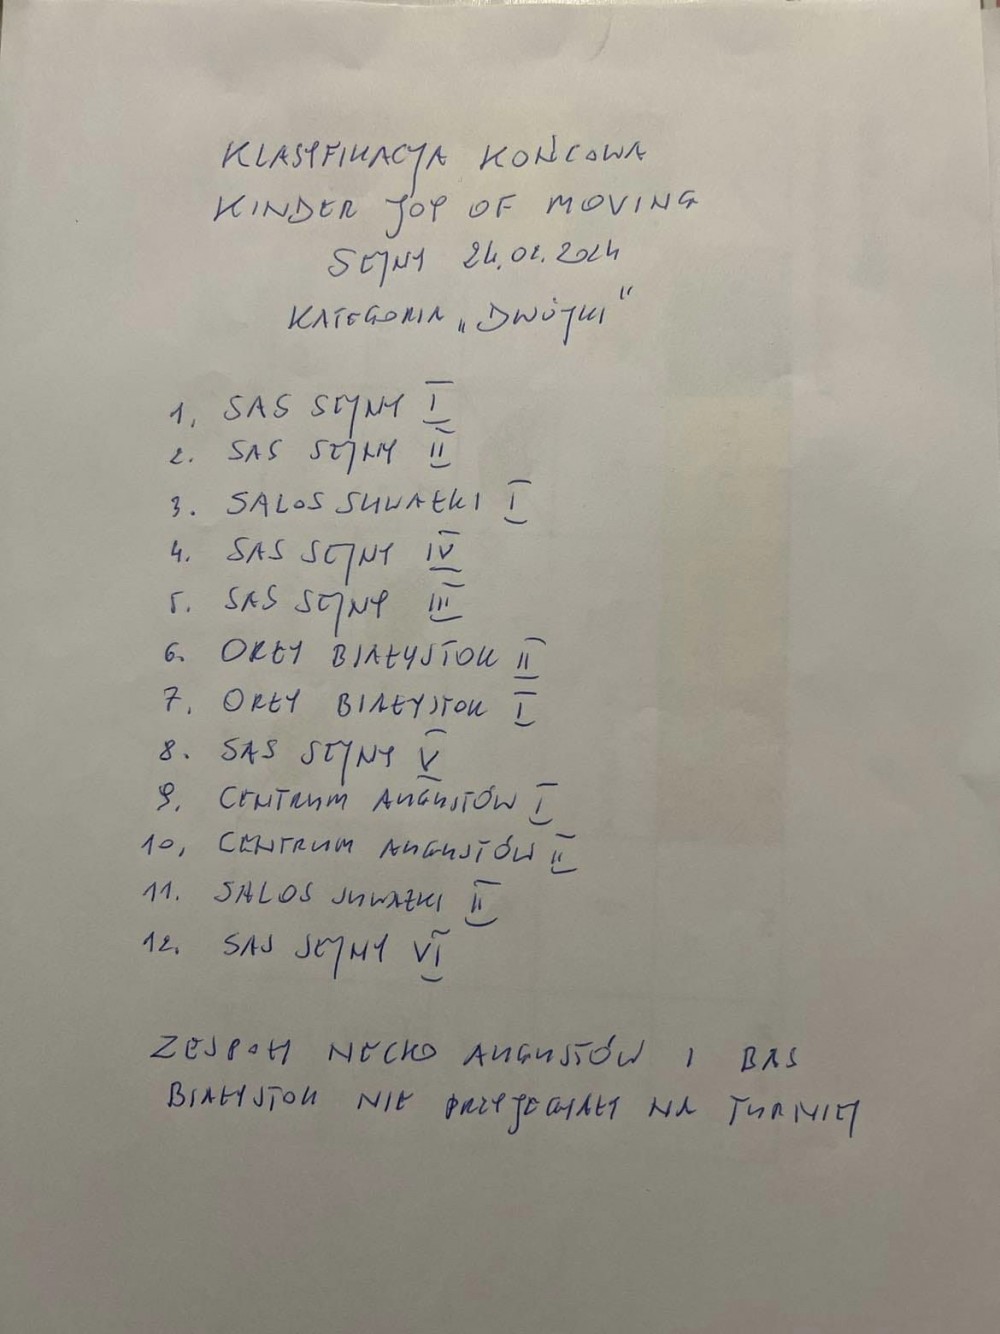 KLASYFIKACJA KOŃCOWA
KINDER JOY OF MOVING
SEJNY 24.02.2024
KATEGORIA „DWÓJKI"
1. SAS SEJNY I
2. SAS SEJNY II
3. SALOS SUWAŁKI I
4. SAS SEJNY IV
5. SAS SEJNY III
6. ORŁY BIAŁYSTOK II
7. ORŁY BIAŁYSTOK I
8. SAS SEJNY V
9. CENTRUM AUGUSTÓW I
10, CENTRUM AUGUSTÓW II
11. SALOS SUWAŁKI II
12. SAS SEJNY VI
ZESPOŁY NECKO AUGUSTÓW I BAS
BIAŁYSTOK NIE PRZYJECHAŁY NA TURNIEJ